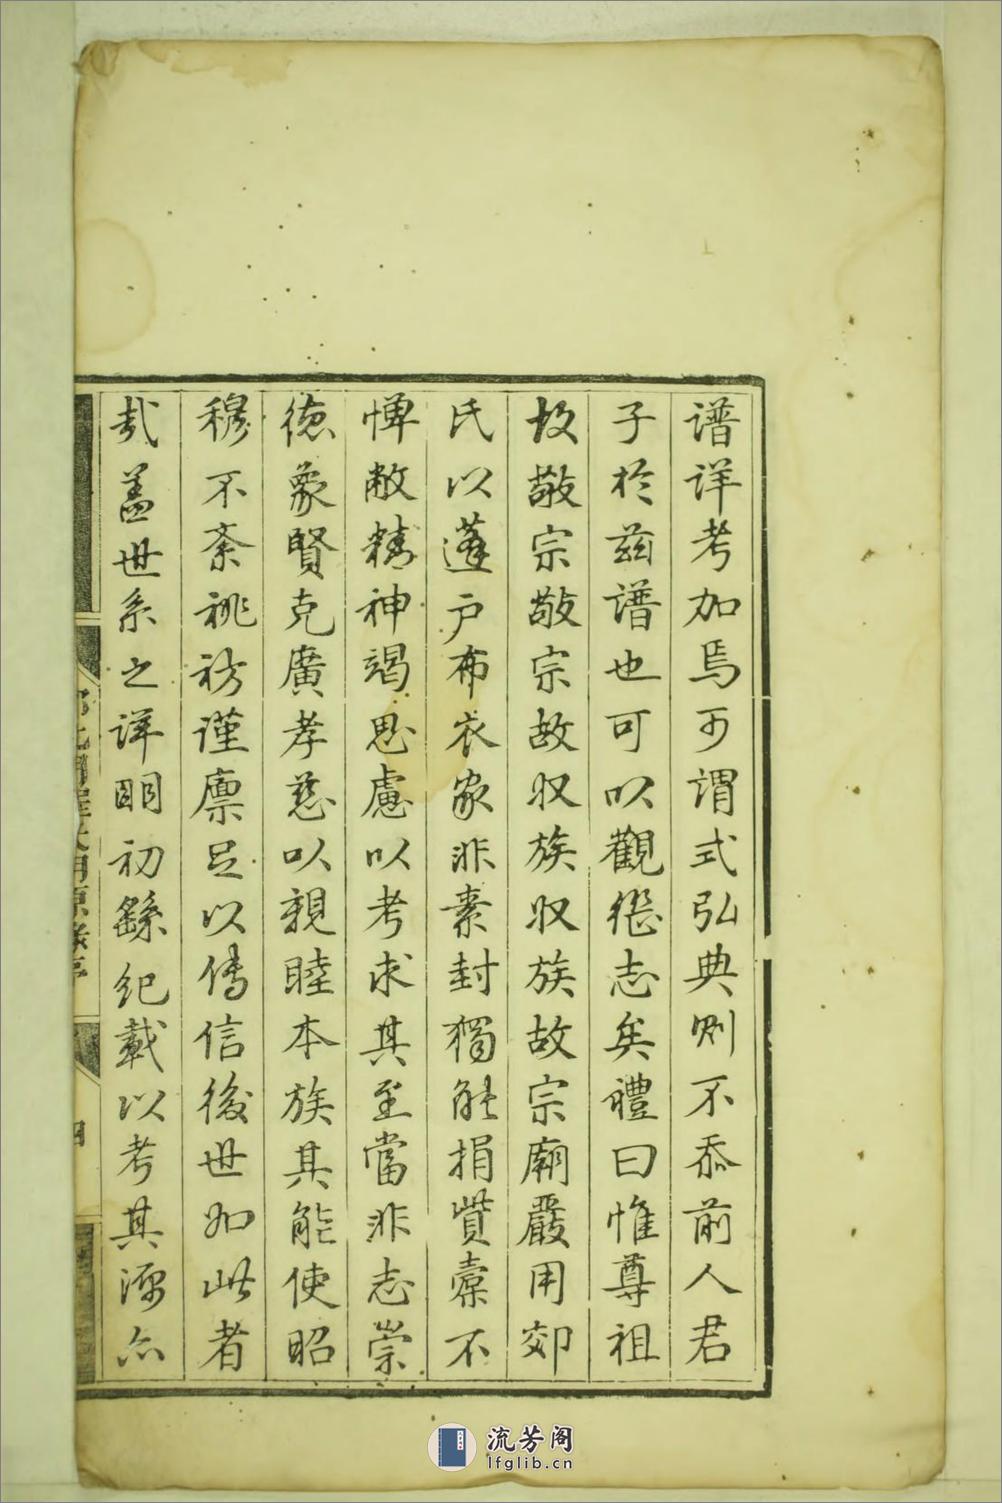 譜詳考加焉可謂式弘典則不忝前人君
子於茲譜也可以觀繼志矣禮曰惟尊祖
故敬宗敬宗故収族収族故宗廟嚴用邲
氏以蓬戶布衣家非素封獨能捐貲橐不
憚敝精神竭思慮以考求其至當非志崇
德象賢克廣孝慈以親睦本族其能使昭
穆不紊祧祊謹廪足以傳信後世如此者
哉盖世系之詳明初繇紀載以考其源亦
四
流芳阁
lfglib.cn